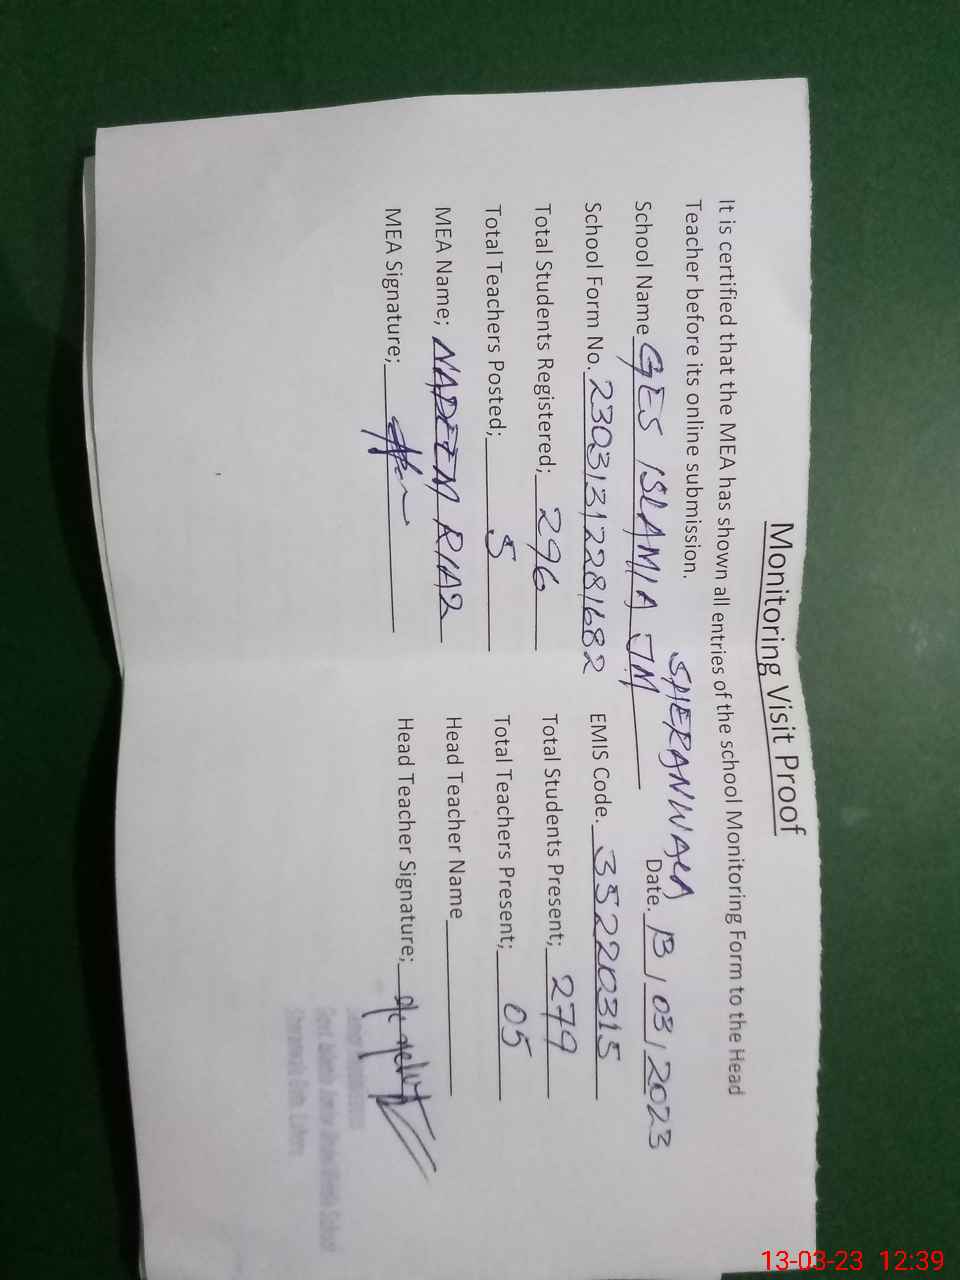 Monitoring Visit Proof
It is certified that the MEA has shown all entries of the school Monitoring Form to the Head
Teacher before its online submission.
SHERANWALA
School Name GES ISLAMIA JM Date. 13/03/2023
School Form No. 23031312281682 EMIS Code. 35220315
Total Students Registered; 296 Total Students Present; 279
Total Teachers Posted; 5 Total Teachers Present; 05
MEA Name; NADEEM RIAZ Head Teacher Name
MEA Signature; Head Teacher Signature;
13-03-23 12:39